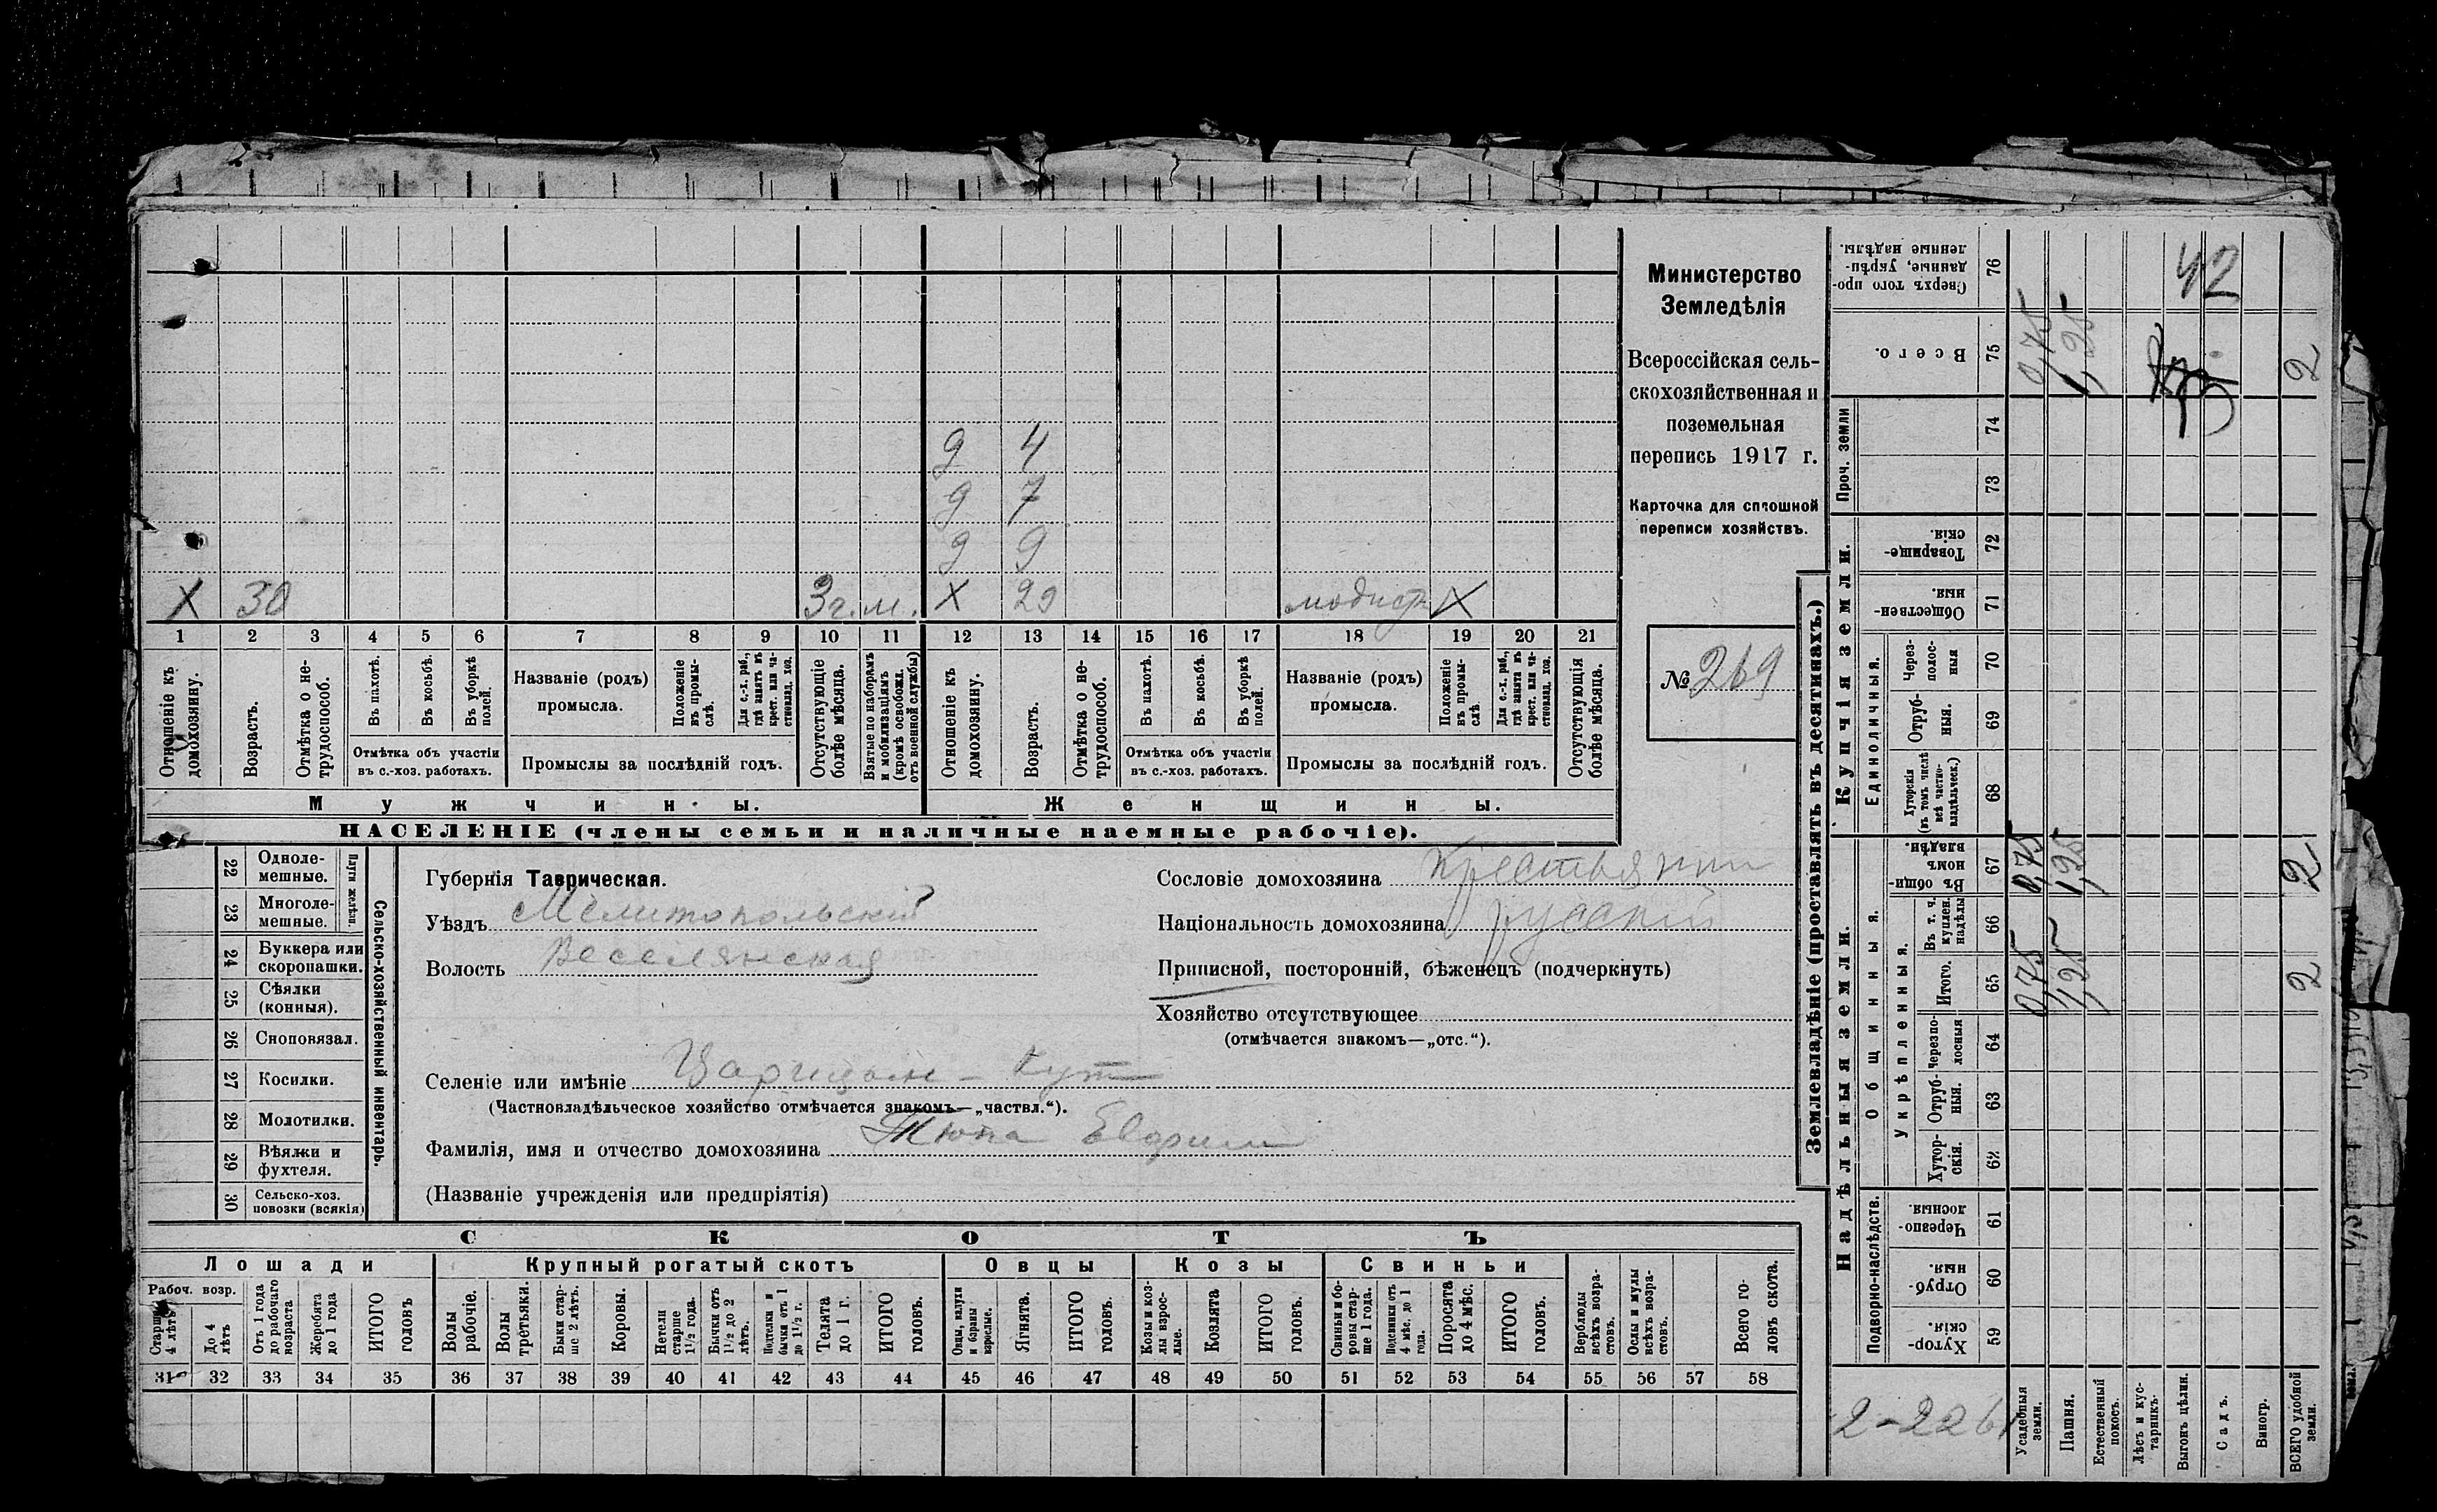 д 4
д 7
д 9
X 30 3 г. м. X 29 модистк X
1 2 3 4 5 6 7 8 9 10 11 12 13 14 15 16 17 18 19 20 21
Отношеніе къ домохозяину.
Возрастъ.
Отмѣтка о нетрудоспособ.
Въ пахотѣ.
Въ косьбѣ.
Въ уборкѣ полей.
Отмѣтка объ участіи
въ с.-хоз. работахъ.
Названіе (родъ)
промысла.
Положеніе въ промыслѣ.
Для с.-х. раб., гдѣ занятъ въ крест. или частновлад. хоз.
Промыслы за послѣдній годъ.
Отсутствующіе болѣе мѣсяца.
Взятые по наборамъ и мобилизаціямъ (кромѣ освобожд. отъ военной службы)
Отношеніе къ домохозяину.
Возрастъ.
Отмѣтка о нетрудоспособ.
Въ пахотѣ.
Въ косьбѣ.
Въ уборкѣ полей.
Отмѣтка объ участіи
въ с.-хоз. работахъ.
Названіе (родъ)
промысла.
Положеніе въ промыслѣ.
Для с.-х. раб., гдѣ занята въ крест. или частновлад. хоз.
Промыслы за послѣдній годъ.
Отсутствующія болѣе мѣсяца.
Мужчины. Женщины.
НАСЕЛЕНІЕ (члены семьи и наличные наемные рабочіе).
Министерство
Земледѣлія
Всероссійская сель-
скохозяйственная и
поземельная
перепись 1917 г.
Карточка для сплошной
переписи хозяйствъ.
№ 269
22 Однолемешные.
23 Многолемешные.
Плуги желѣзн.
24 Буккера или скоропашки.
25 Сѣялки (конныя).
26 Сноповязал.
27 Косилки.
28 Молотилки.
29 Вѣялки и фухтеля.
30 Сельско-хоз. повозки (всякія)
Сельско-хозяйственный инвентарь.
Губернія Таврическая.
Уѣздъ Мелитопольскій
Волость Веселянская
Сословіе домохозяина Крестьянин
Національность домохозяина русскій
Приписной, посторонній, бѣженецъ (подчеркнуть)
Хозяйство отсутствующее
(отмѣчается знакомъ—„отс.“).
Селеніе или имѣніе Царицын - Кут
(Частновладѣльческое хозяйство отмѣчается знакомъ—„частвл.“).
Фамилія, имя и отчество домохозяина Тюпа
(Названіе учрежденія или предпріятія)
СКОТЪ
Лошади Крупный рогатый скотъ Овцы Козы Свиньи
Рабоч. возр.
Старше 4 лѣтъ
До 4 лѣтъ
Отъ 1 года до рабочаго возраста
Жеребята до 1 года
ИТОГО головъ
Волы рабочіе.
Волы третьяки.
Быки старше 2 лѣтъ.
Коровы.
Нетели старше 1½ года.
Бычки отъ 1½ до 2 лѣтъ.
Подтелки и бычки отъ 1 до 1½ г.
Телята до 1 г.
ИТОГО головъ.
Овцы, валухи и бараны взрослые.
Ягнята.
ИТОГО головъ.
Козы и козлы взрослые.
Козлята
ИТОГО головъ.
Свиньи и боровы старше 1 года.
Подсвинки отъ 4 мѣс. до 1 года.
Поросята до 4 мѣс.
ИТОГО головъ.
Верблюды всѣхъ возрастовъ.
Ослы и мулы всѣхъ возрастовъ.
Всего головъ скота.
31 32 33 34 35 36 37 38 39 40 41 42 43 44 45 46 47 48 49 50 51 52 53 54 55 56 57 58
Землевладѣніе (проставлять въ десятинахъ.)
Сверхъ того проданные, укрѣпленные надѣлы. 76 42
Всего. 75 0,75 1,25 2
Проч. земли 74
73
Купчія земли.
Товарищескія. 72
Общественныя. 71
Единоличныя.
Черезполосныя 70
Отрубныя. 69
Хуторскія (въ томъ числѣ всѣ частновладѣльческ.) 68
Надѣльныя земли.
Общинныя.
Въ общинномъ владѣн. 67 0,75 1,25 2
Укрѣпленныя.
Въ т. ч. куплен. надѣлы 66
Итого. 65 0,75 1,25 2
Черезполосныя 64
Отрубныя. 63
Хуторскія. 62
Подворно-наслѣдств.
Черезполосныя. 61
Отрубныя. 60
Хуторскія. 59
2-226
Усадебныя земли.
Пашня.
Естественный покосъ.
Лѣсъ и кустарникъ.
Выгонъ цѣлин.
Садъ.
Виногр.
ВСЕГО удобной земли.